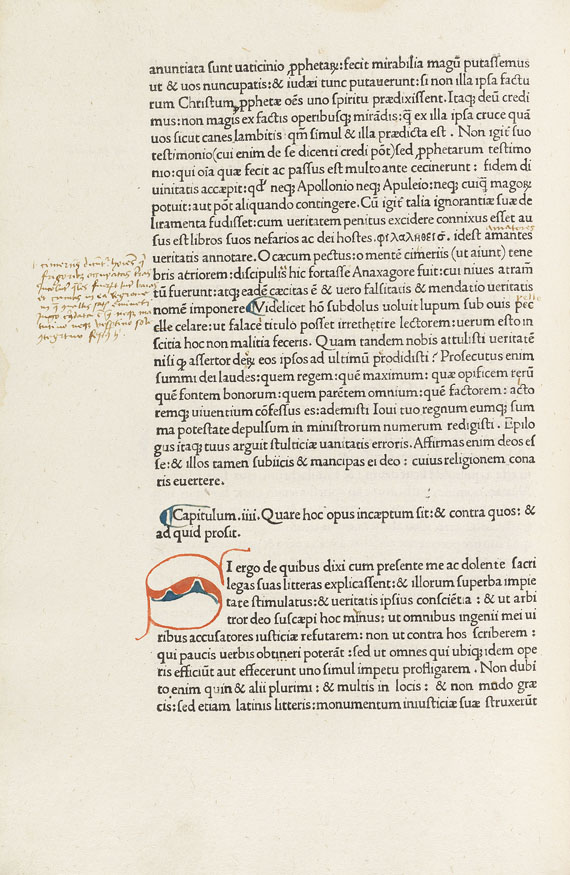 anuntiata sunt uaticinio ꝓphetaꝝ: fecit mirabilia magū putassemus
ut & uos nuncupatis: & iudæi tunc putauerunt: si non illa ipsa factu
rum Christum ꝓphetæ oēs uno spiritu prædixissent. Itaqꝫ deū credi
mus: non magis ex factis operibusqꝫ mirādis: q̄ ex illa ipsa cruce quā
uos sicut canes lambitis qm̄ simul & illa prædicta est. Non igit̄ suo
testimonio(cui enim de se dicenti credi pōt)sed ꝓphetarum testimo
nio: qui oīa quæ fecit ac passus est multo ante cecinerunt: fidem di
uinitatis accæpit: qđ neqꝫ Apollonio neqꝫ Apuleio: neqꝫ cuiq̄ magoꝝ
potuit: aut pōt aliquando contingere. Cū igit̄ talia ignorantiæ suæ de
liramenta fudisset: cum ueritatem penitus excidere connixus esset au
sus est libros suos nefarios ac dei hostes. φιλαληθεισ. idest amantes
amatores
ueritatis annotare. O cæcum pectus: o mentē cimeriis (ut aiunt) tene
bris atriorem: discipulꝰ hic fortasse Anaxagoræ fuit: cui niues atram̄
tū fuerunt: atqꝫ eadē cæcitas ē & uero falsitatis & mendatio ueritatis
nomē imponere Videlicet hō subdolus uoluit lupum sub ouis pec
pelle
elle celare: ut falace titulo posset irrethetire lectorem: uerum esto in
scitia hoc non malitia feceris. Quam tandem nobis attulisti ueritatē
nisi q̄ assertor deꝝ eos ipsos ad ultimū prodidisti? Prosecutus enim
summi dei laudes: quem regem: quē maximum: quæ opificem reꝝ
quē fontem bonorum: quem parētem omnium: quē factorem: acto
remqꝫ uiuentium cōfessus es: ademisti Ioui tuo regnum eumqꝫ sum
ma potestate depulsum in ministrorum numerum redigisti. Epilo
gus itaqꝫ tuus arguit stulticiæ uanitatis erroris. Affirmas enim deos es
se: & illos tamen subiicis & mancipas ei deo: cuius religionem cona
ris euertere.
Capitulum .iiii. Quare hoc opus incæptum sit: & contra quos: &
ad quid prosit.
SI ergo de quibus dixi cum presente me ac dolente sacri
legas suas litteras explicassent: & illorum superba impie
tate stimulatus: & ueritatis ipsius consciētia: & ut arbi
tror deo suscæpi hoc minus: ut omnibus ingenii mei ui
ribus accusatores iusticiæ refutarem: non ut contra hos scriberem:
qui paucis uerbis obtineri poterāt: sed ut omnes qui ubiqꝫ idem ope
ris efficiūt aut effecerunt uno simul impetu profligarem. Non dubi
to enim quin & alii plurimi: & multis in locis: & non modo græ
cis: sed etiam latinis litteris: monumentum iniusticiæ suæ struxerūt